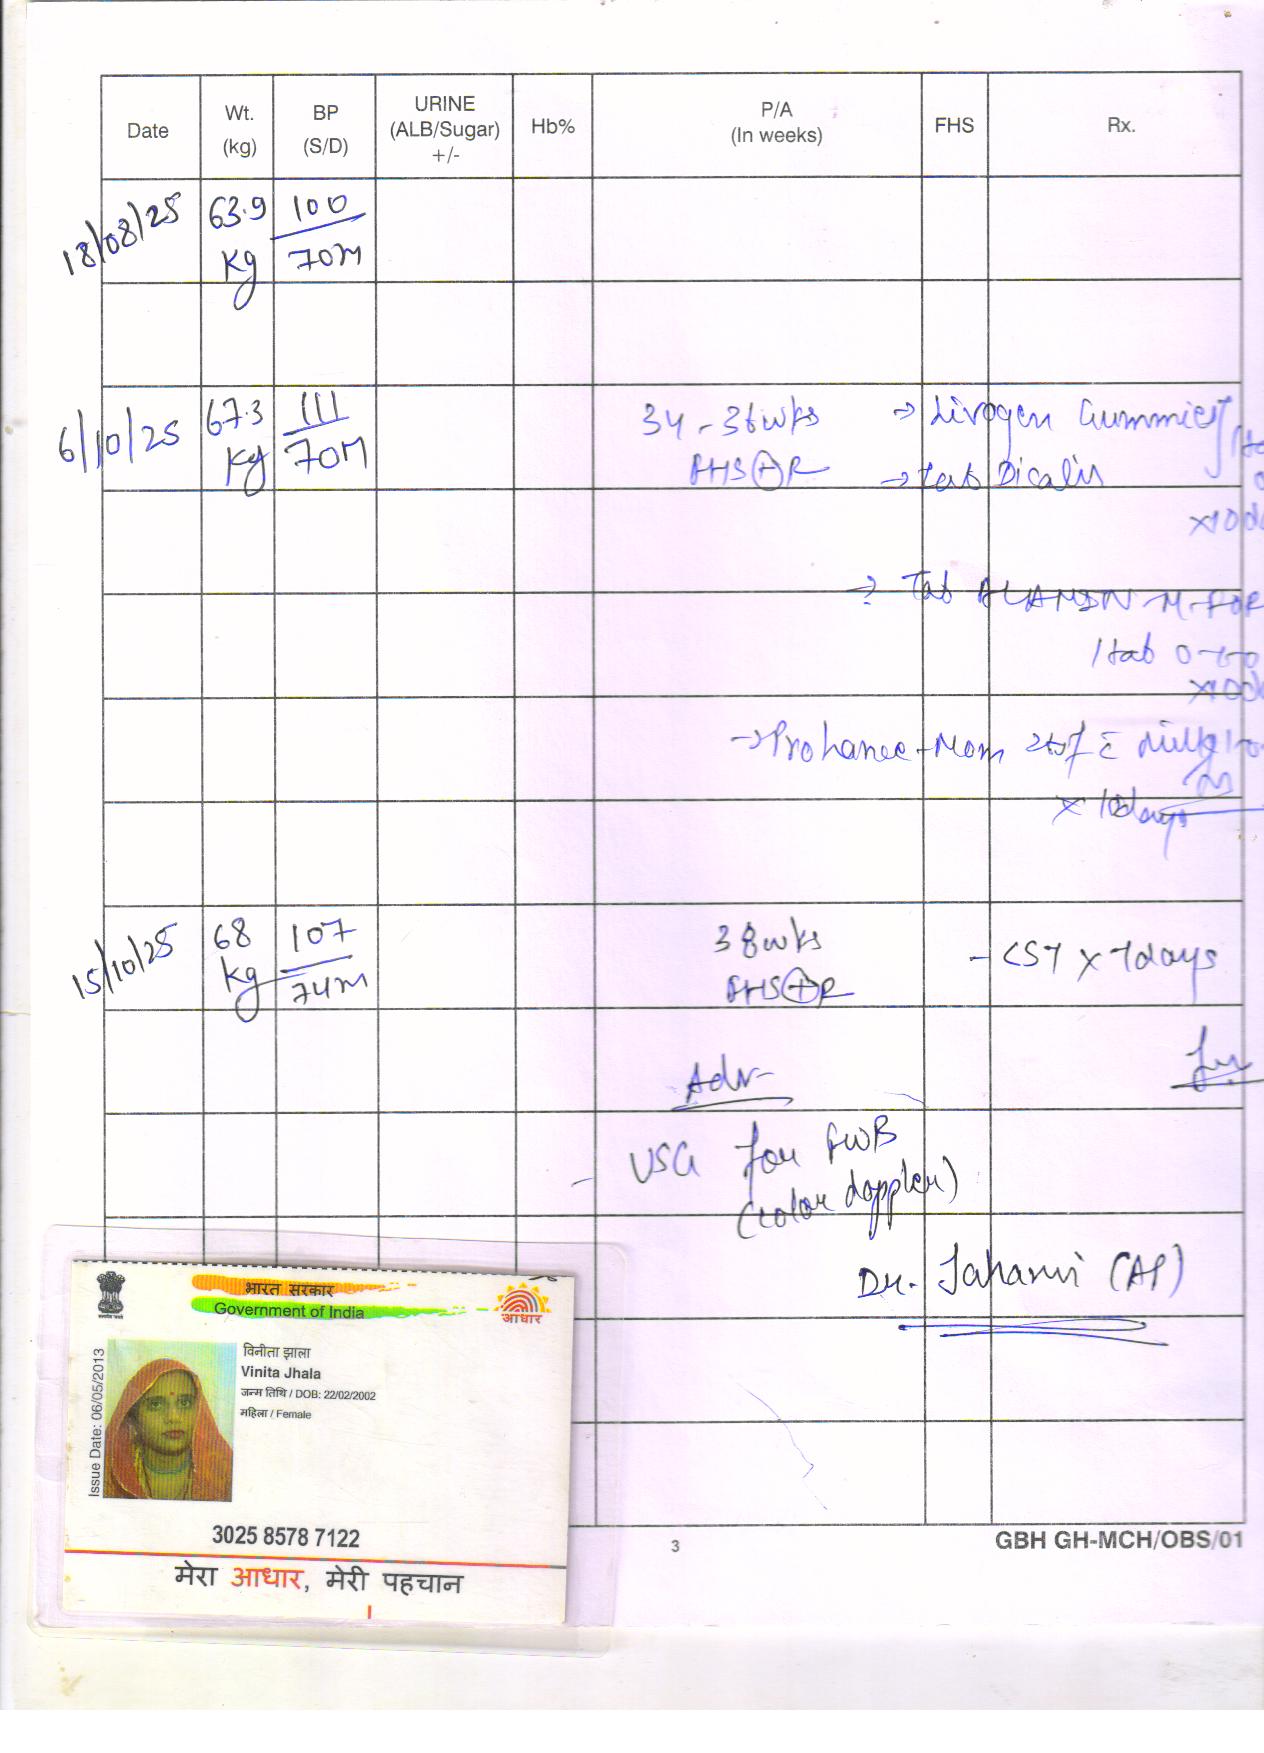 Date Wt. (kg) BP (S/D) URINE (ALB/Sugar) +/- Hb% P/A (In weeks) FHS Rx.
18/08/25 63.9 kg 100/70m
6/10/25 67.3 kg 111/70m 34-36wks → Livogen Gummies
FHS + R → Tab Dicalis
x10d
→ Tab ALAMIN-M-FOR
1tab
x10d
→ Prohance-Mom
x 10days
15/10/25 68 kg 107/74m 38wks - CST x 7days
FHS + R
Adv-
- USG for FWB
(color doppler)
Dr. Jahanvi (AP)
भारत सरकार
Government of India
आधार
Issue Date: 06/05/2013
विनीता झाला
Vinita Jhala
जन्म तिथि / DOB: 22/02/2002
महिला / Female
3025 8578 7122
मेरा आधार, मेरी पहचान
3
GBH GH-MCH/OBS/01